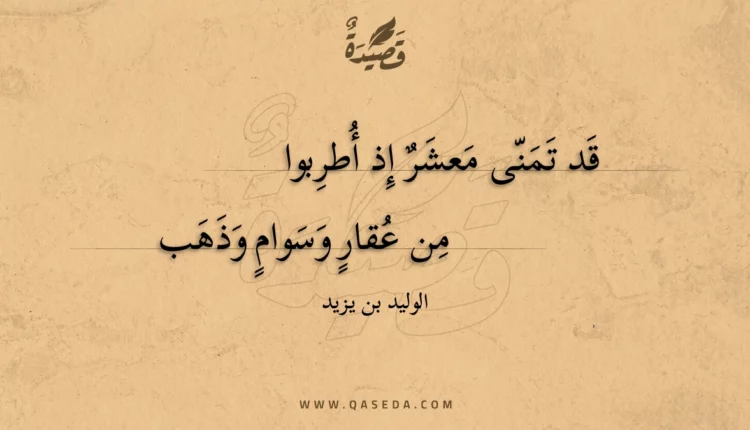 قَصِيدَةٌ
قَد تَمَنّى مَعشَرٌ إِذ أُطرِبوا
مِن عُقارٍ وَسَوامٍ وَذَهَب
الوليد بن يزيد
WWW.QASEDA.COM